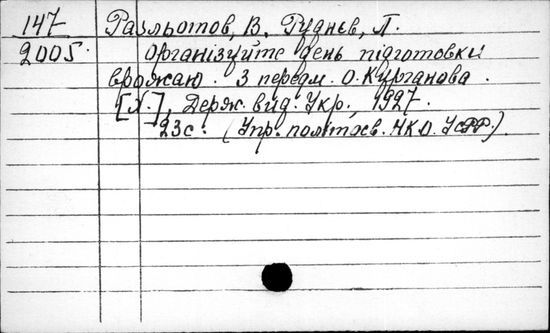 147 Разльотов, В. Руднєв, Л.
2005. Організуйте день підготовки
врожаю. З передм. О. Курганова.
[Х.], Держ. вид. Укр., 1927.
23с. (Упр. політосв. НКО. УСРР.)